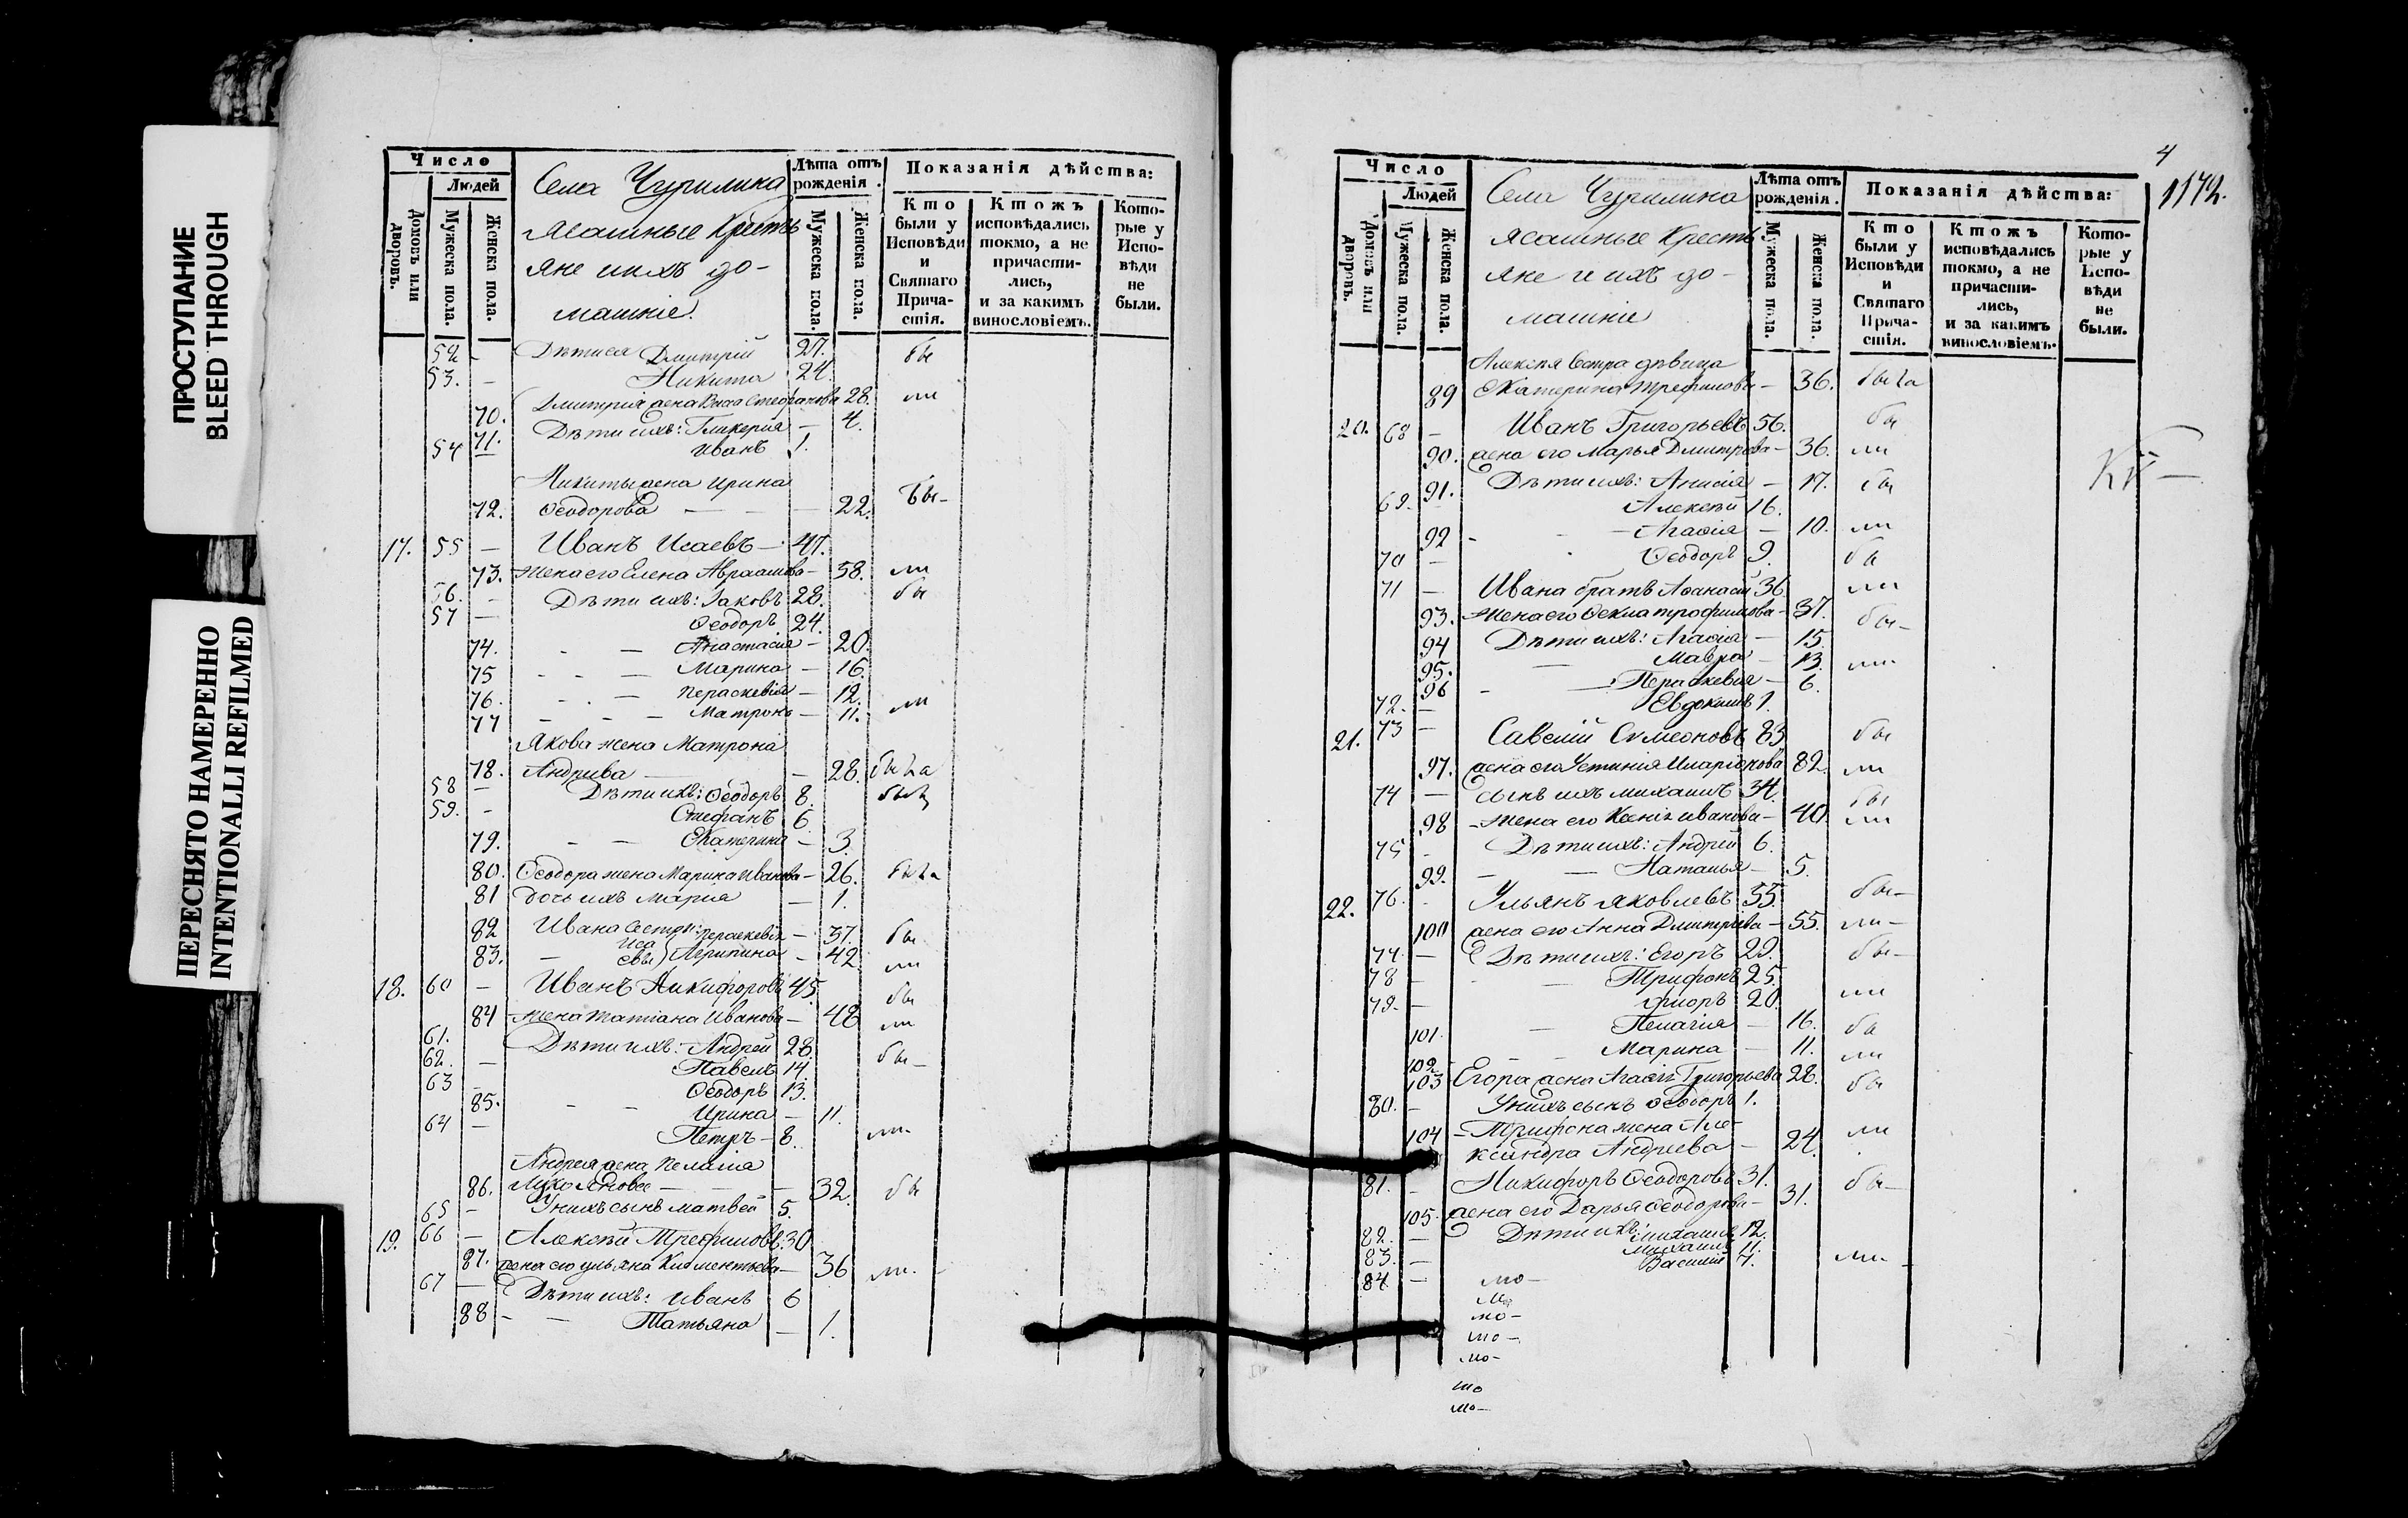 ПРОСТУПАНИЕ
BLEED THROUGH
ПЕРЕСНЯТО НАМЕРЕННО
INTENTIONALLI REFILMED
Число
Людей
Домовъ или дворовъ.
Мужеска пола.
Женска пола.
Села Чурилина
Ясашные Кресть
яне иихъ до-
машніе.
Лѣта отъ рожденія.
Мужеска пола.
Женска пола.
Показанія дѣйства:
Кто были у Исповѣди и Святаго Прича-стія.
Ктожъ исповѣдались токмо, а не причасти-лись, и за какимъ винословіемъ.
Кото-рые у Испо-вѣди не были.
52 - Дмитрій 27. бы
53. - Никита 24.
70. Дмитрія жена Стефанова 28. ли
71. Дѣти ихъ: Гликерия - 4.
54 Иванъ 1.
Никиты жена Ирина
72. Ѳеодорова - - - 22. бы-
17. 55 - Иванъ Исаевъ - 47.
73. Жена его Елена Авраамова - 58. ли
56. - Дѣти ихъ: Іаковъ 28. бы
57 - Ѳеодоръ 24.
74. - - Анастасія - 20.
75 - - Марина - 16.
76. - - Пераскевія - 12.
77 - - Матрона - 11. ли
Якова жена Матрона
78. Андреева - - 28. была
58 - Дѣти ихъ: Ѳеодоръ 8.
59. - Стефанъ 6
79. - - Екатерина - 3.
80. Ѳеодора жена Марина Иванова - 26. была
81 дочь ихъ Мария - 1.
82 Ивана сестры: Пераскевія - 37. бы
83. - Исаевы Агрипина - 42 ли
18. 60 - Иванъ Никифоровъ 45. бы
84 Жена Татіана Иванова - 48 ли
61. Дѣти ихъ: Андрей 28.
62. - Павелъ 14. бы-
63 - Ѳеодоръ 13.
85. - - Ирина - 11.
64 - Петръ - 8. ли-
Андрея жена Пелагія
86. - - - 32. бы
65 - У нихъ сынъ Матвей 5.
19. 66 - Алексѣй Трефиловъ 30
87. жена его Ульяна Климентьева - 36 ли.
67 - Дѣти ихъ: Иванъ 6
88 - - Татьяна - 1.
4
1172.
Число
Людей
Домовъ или дворовъ.
Мужеска пола.
Женска пола.
Села Чурилина
Ясашные Кресть
яне и ихъ до-
машніе
Лѣта отъ рожденія.
Мужеска пола.
Женска пола.
Показанія дѣйства:
Кто были у Исповѣди и Святаго Прича-стія.
Ктожъ исповѣдались токмо, а не причасти-лись, и за какимъ винословіемъ.
Кото-рые у Испо-вѣди не были.
Алексѣя сестра дѣвица
89 Екатерина Трефилова - 36. была
20. 68 - Иванъ Григорьевъ 56. бы
90. жена его Марья Дмитрова - 36. ли
91. Дѣти ихъ: Анисія - 17. бы
69. Алексѣй 16.
92 - - Агафія - 10. ли
70 - Ѳеодоръ 9. бы
71 - Ивана братъ Аѳанасій 36. ли
93. Жена его Ѳекла Трофимова - 37. бы-
94 Дѣти ихъ: Агафія - 15.
95. - Мавра - 13. ли
96 - - Пераскевія - 6.
72. - Евдокимъ 1.
21. 73 - Савелій Симеоновъ 83 бы
97. жена его Устинія Иларіонова 82. ли
74 - сынъ ихъ Михаилъ 34. бы
98 - Жена его Ксенія Иванова - 40. ли
75 - Дѣти ихъ: Андрей 6.
99. - - Наталья - 5.
22. 76. - Ульянъ Яковлевъ 55. бы-
100 жена его Анна Дмитріева - 55. ли-
77 - Дѣти ихъ: Егоръ 29. бы-
78 - - Трифонъ 25.
79. - Флоръ 20. ли
101. - Пелагія - 16. бы
102 - - Марина - 11. ли
103 Егора жена Агафія Григорьева 28. бы
80. - У нихъ сынъ Ѳеодоръ 1.
104 - Трифона жена Але-
ксандра Андреева - 24. ли
81. - Никифоръ Ѳеодоровъ 31. бы-
105. жена его Дарья Ѳеодорова - 31.
82. - Дѣти ихъ: Михаилъ 12.
83. - Михаилъ 11.
84 - Василій 7. ли-